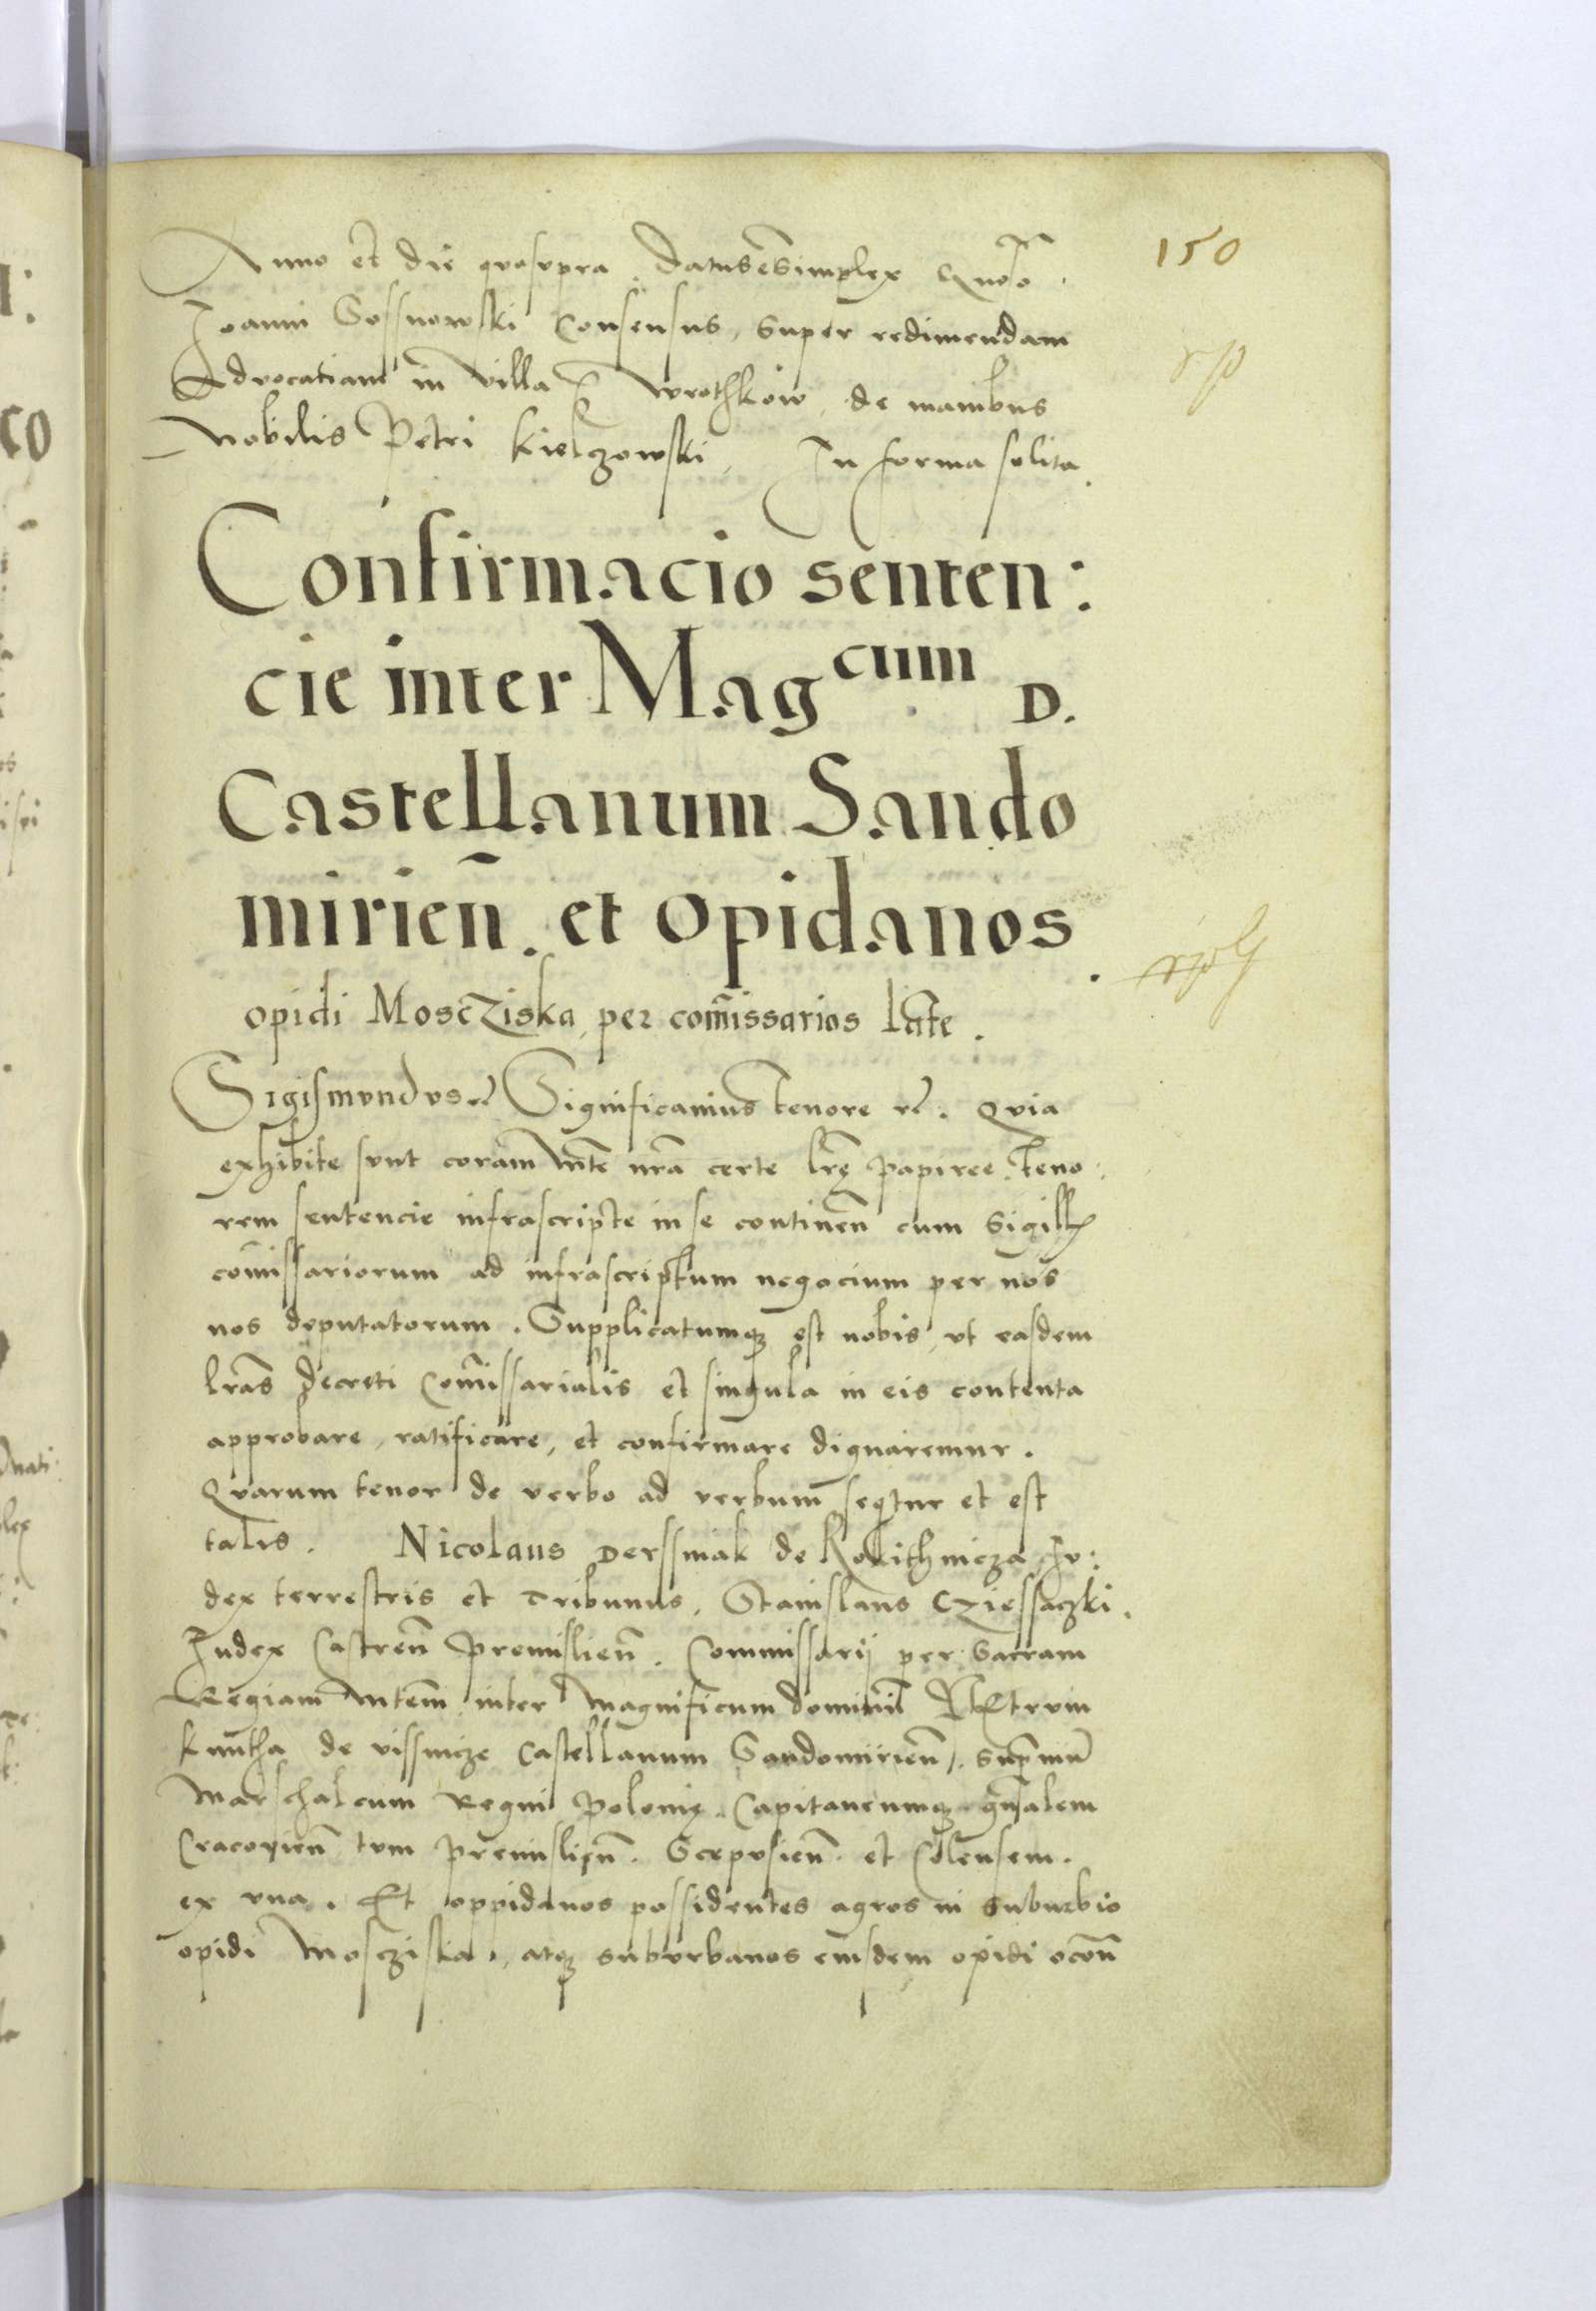 150
Anno et die quosupra. Datus e simplex
Joanni Gossnowski Consensus, super redimendam
Advocatiam in villa Wrothkow, de manibus
Nobilis Petri Kielczowski, In forma solita.
Confirmacio senten:
cie inter Mag^cum D.
Castellanum Sando
mirien̄. et opidanos
opidi Moscziska, per com̄issarios late.
Sigismundus Significamus tenore rc̄. Quia
exhibite sunt coram Mte nrā certe lrē papiree. Teno:
rem sentencie infrascripte in se continen̄ cum Sigill
com̄issariorum ad infrascriptum negocium per nos
nos deputatorum. Supplicatumq3 est nobis, ut easdem
lrās Decreti Com̄issarialis et singula in eis contenta
approbare, ratificare, et confirmare dignaremur.
Quarum tenor de verbo ad verbum sequtur et est
talis. Nicolaus Derssniak de Rokithnicza Ju:
dex terrestris et Tribunus, Stanislaus Cziessaczki.
Judex Castren̄ Premislien̄. Commissarij per Sacram
Regiam Mtem̄ inter Magnificum dominū Petrum
Kmitha de vissnicze Castellanum Sandomirien̄. Supremū
Marschalcum Regni Polonię. Capitaneumq3 gn̄ralem
Cracovien̄ tum Premislien̄. Scepusien̄. et Colensem.
ex una. Et oppidanos possidentes agros in suburbio
opidi Mosziska, atq3 suburbanos eiusdem opidi